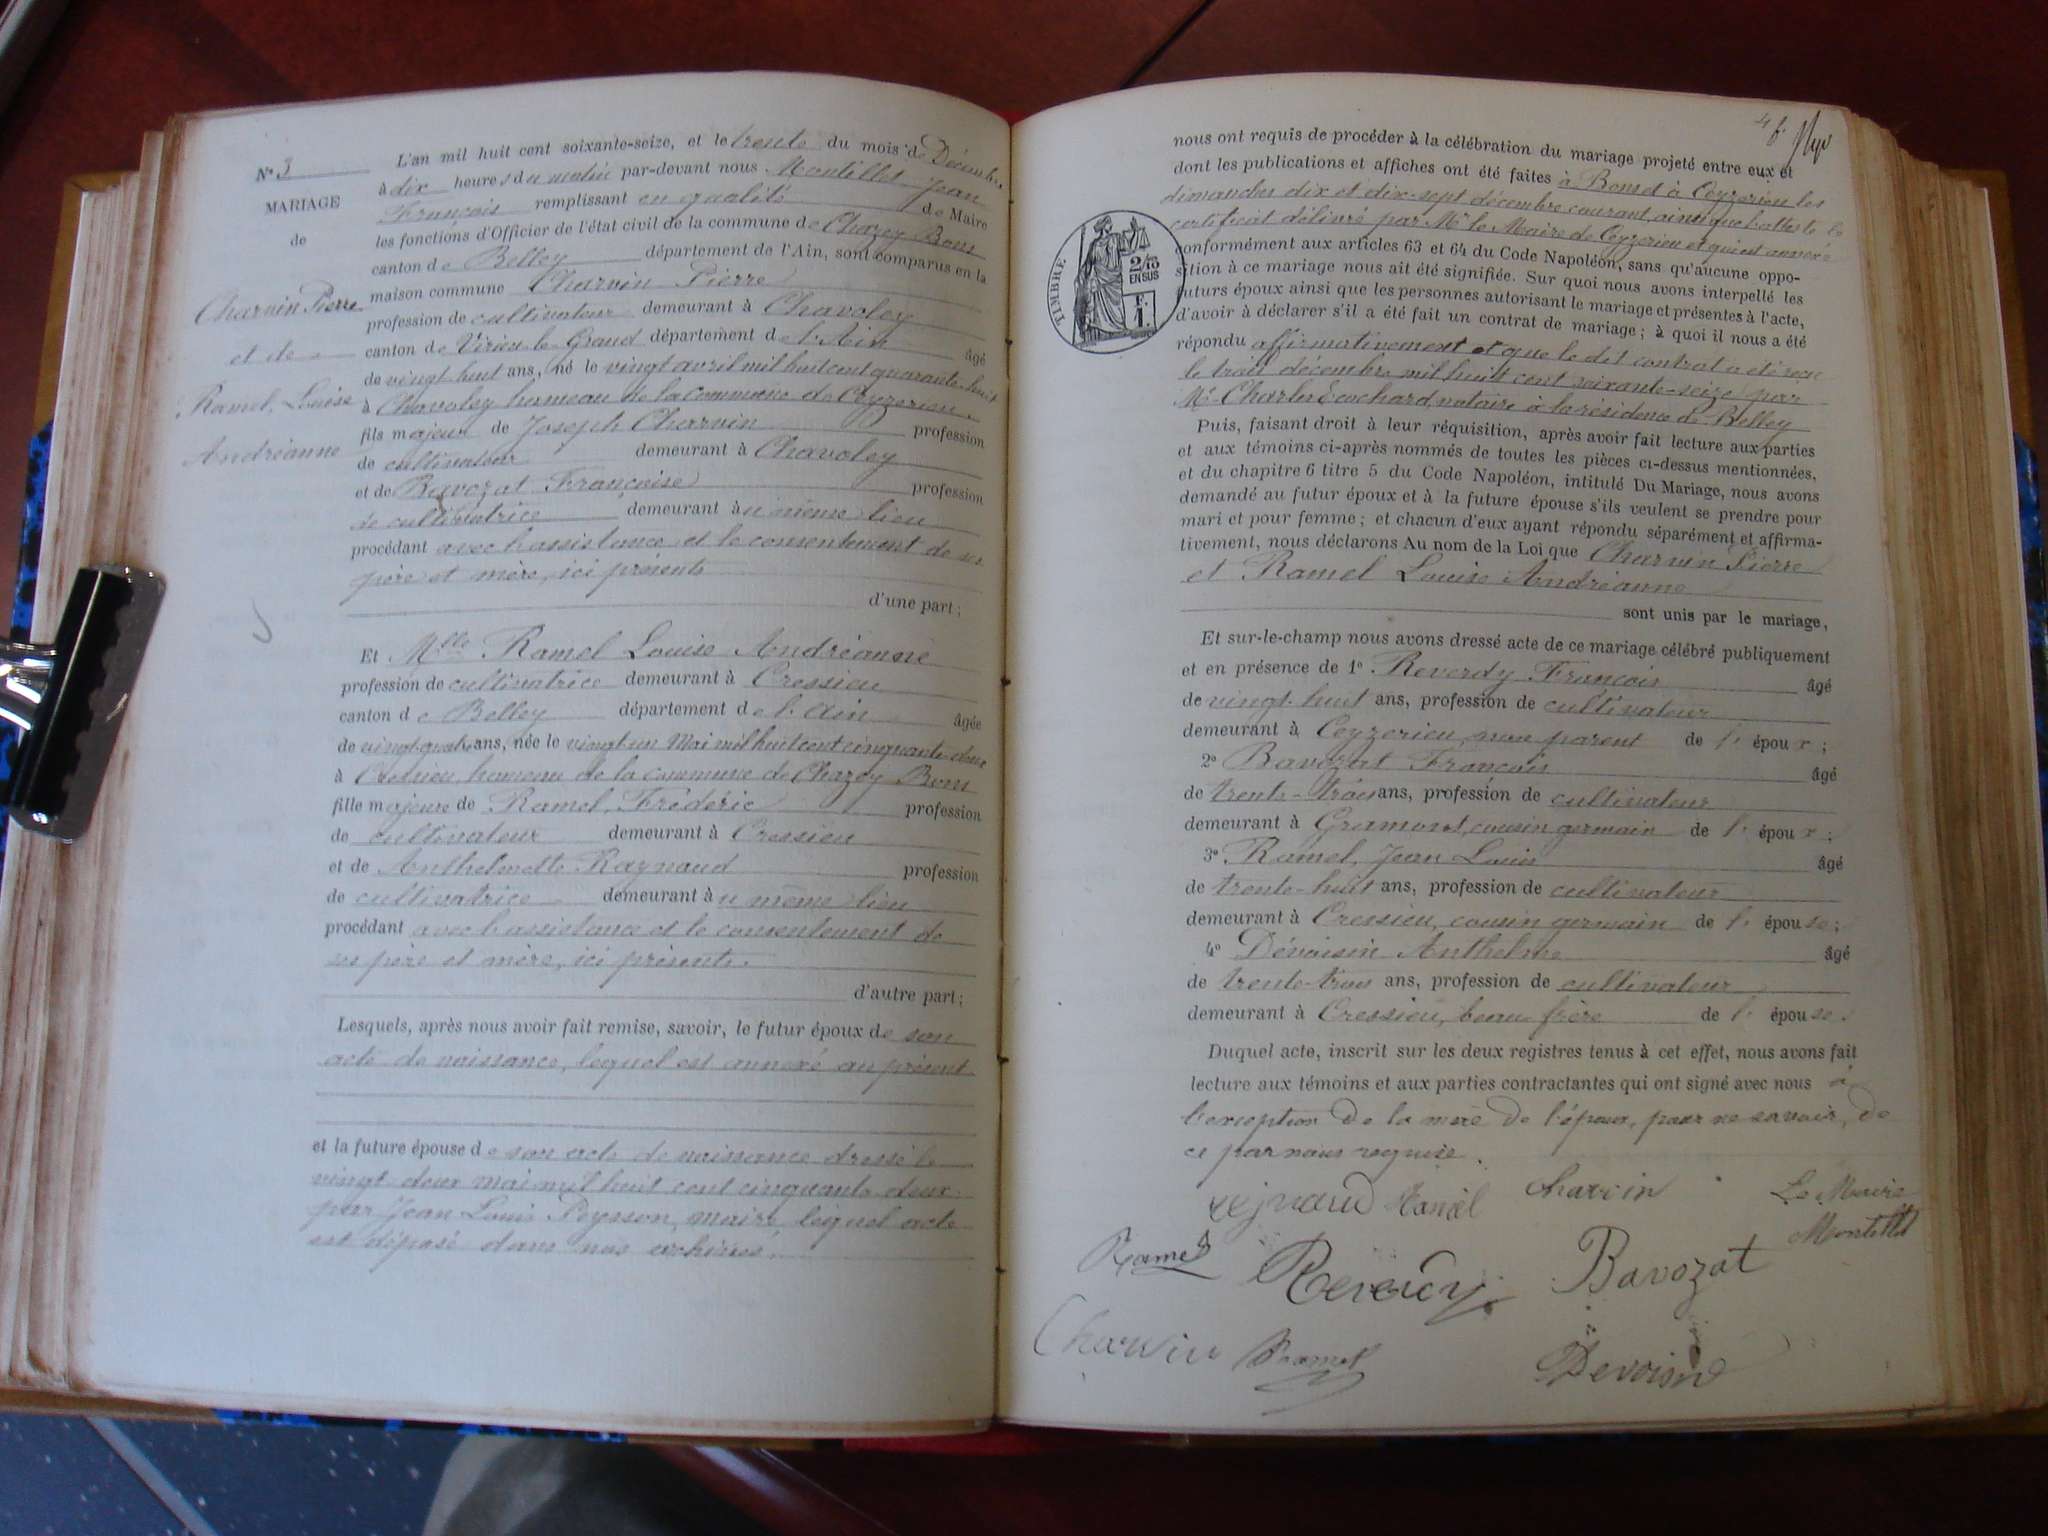 N° 3
MARIAGE
de
Charvin Pierre
et de
Ramel, Louise
Andréanne
L'an mil huit cent soixante-seize, et le trente du mois de Décembre
à dix heures du matin par-devant nous Montillet Jean
François remplissant en qualité de Maire
les fonctions d'Officier de l'état civil de la commune de Chazey Bons
canton de Belley département de l'Ain, sont comparus en la
maison commune Charvin Pierre
profession de cultivateur demeurant à Chavoley
canton de Virieu-le-Grand département de l'Ain âgé
de vingt huit ans, né le vingt avril mil huit cent quarante-huit
à Chavoley hameau de la commune de Ceyzerieu
fils majeur de Joseph Charvin profession
de cultivateur demeurant à Chavoley
et de Bavozat Françoise profession
de cultivatrice demeurant au même lieu
procédant avec l'assistance et le consentement de ses
père et mère, ici présents
d'une part;
Et Mlle Ramel Louise Andréanne
profession de cultivatrice demeurant à Cressieu
canton de Belley département de l'Ain âgée
de vingt-quatre ans, née le vingt un Mai mil huit cent cinquante-deux
à Cressieu, hameau de la commune de Chazey Bons
fille majeure de Ramel, Frédéric profession
de cultivateur demeurant à Cressieu
et de Anthelmette Raynaud profession
de cultivatrice demeurant au même lieu
procédant avec l'assistance et le consentement de
ses père et mère, ici présents.
d'autre part;
Lesquels, après nous avoir fait remise, savoir, le futur époux de son
acte de naissance, lequel est annexé au présent
et la future épouse de son acte de naissance dressé le
vingt deux mai mil huit cent cinquante deux
par Jean Louis Peysson, maire, lequel acte
est déposé dans nos archives.
4 f.
nous ont requis de procéder à la célébration du mariage projeté entre eux et
dont les publications et affiches ont été faites à Bons et à Ceyzerieu les
dimanches dix et dix-sept décembre courant, ainsi que l'atteste le
certificat délivré par Mr le Maire de Ceyzerieu et qui est annexé
conformément aux articles 63 et 64 du Code Napoléon, sans qu'aucune oppo-
sition à ce mariage nous ait été signifiée. Sur quoi nous avons interpellé les
futurs époux ainsi que les personnes autorisant le mariage et présentes à l'acte,
d'avoir à déclarer s'il a été fait un contrat de mariage; à quoi il nous a été
répondu affirmativement et que le dit contrat a été reçu
le trois décembre mil huit cent soixante-seize par
Me Charles Cochard, notaire à la résidence de Belley
TIMBRE
2/10
EN SUS
F.
1.
Puis, faisant droit à leur réquisition, après avoir fait lecture aux parties
et aux témoins ci-après nommés de toutes les pièces ci-dessus mentionnées,
et du chapitre 6 titre 5 du Code Napoléon, intitulé Du Mariage, nous avons
demandé au futur époux et à la future épouse s'ils veulent se prendre pour
mari et pour femme; et chacun d'eux ayant répondu séparément et affirma-
tivement, nous déclarons Au nom de la Loi que Charvin Pierre
et Ramel Louise Andréanne
sont unis par le mariage,
Et sur-le-champ nous avons dressé acte de ce mariage célébré publiquement
et en présence de 1° Reverdy François âgé
de vingt-huit ans, profession de cultivateur
demeurant à Ceyzerieu, non parent de l'époux;
2° Bavozat François âgé
de trente-trois ans, profession de cultivateur
demeurant à Gramont, cousin germain de l'époux;
3° Ramel, Jean Louis âgé
de trente-huit ans, profession de cultivateur
demeurant à Cressieu, cousin germain de l'épouse;
4° Dévoisin Anthelme âgé
de trente-trois ans, profession de cultivateur
demeurant à Cressieu, beau frère de l'épouse.
Duquel acte, inscrit sur les deux registres tenus à cet effet, nous avons fait
lecture aux témoins et aux parties contractantes qui ont signé avec nous à
l'exception de la mère de l'époux, pour ne savoir, de
ce par nous requise.
Ramel Charvin Le Maire
Montillet
Ramel Reverdy Bavozat
Charvin Ramel Devoisin